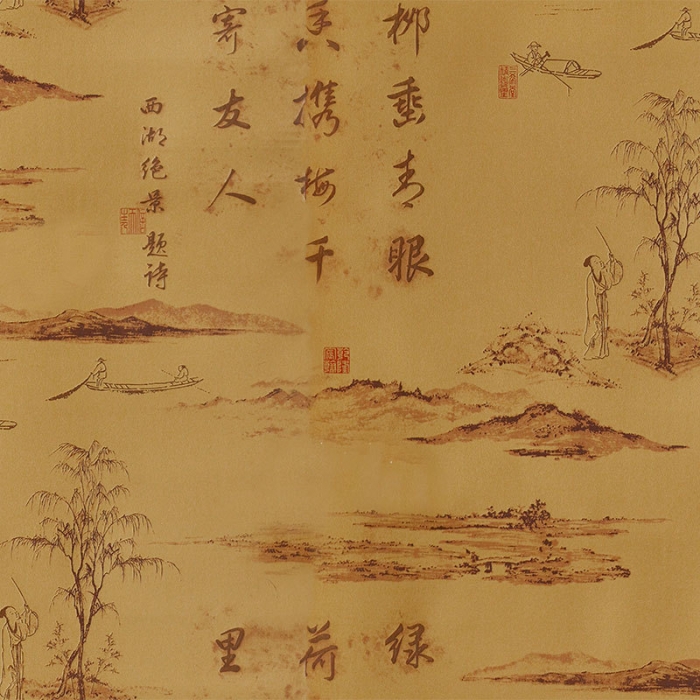 柳垂青眼
携梅千
寄友人
西湖绝景 题诗
绿
荷
里